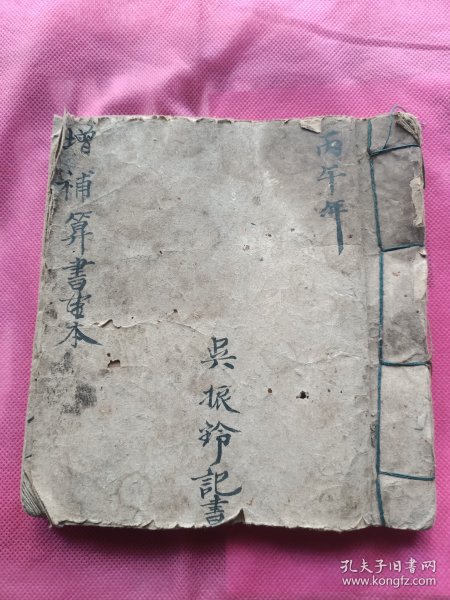 丙午年
吳振鈴記書
增補算書全本
孔夫子旧书网
www.kongfz.com